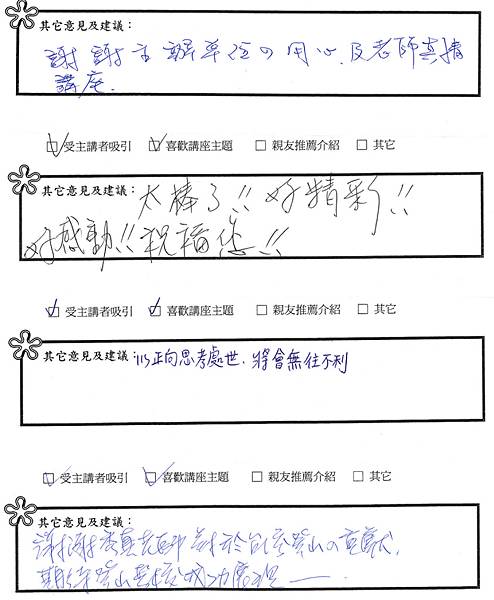 其它意見及建議：
謝謝主辦單位の用心及老師真情
講座.
受主講者吸引 喜歡講座主題 親友推薦介紹 其它
其它意見及建議：太棒了!! 好精彩!!
好感動!! 祝福您!!
受主講者吸引 喜歡講座主題 親友推薦介紹 其它
其它意見及建議：以正向思考處世，將會無往不利
受主講者吸引 喜歡講座主題 親友推薦介紹 其它
其它意見及建議：
謝謝 老師 對於 登山の貢獻，
期待登山學校成功